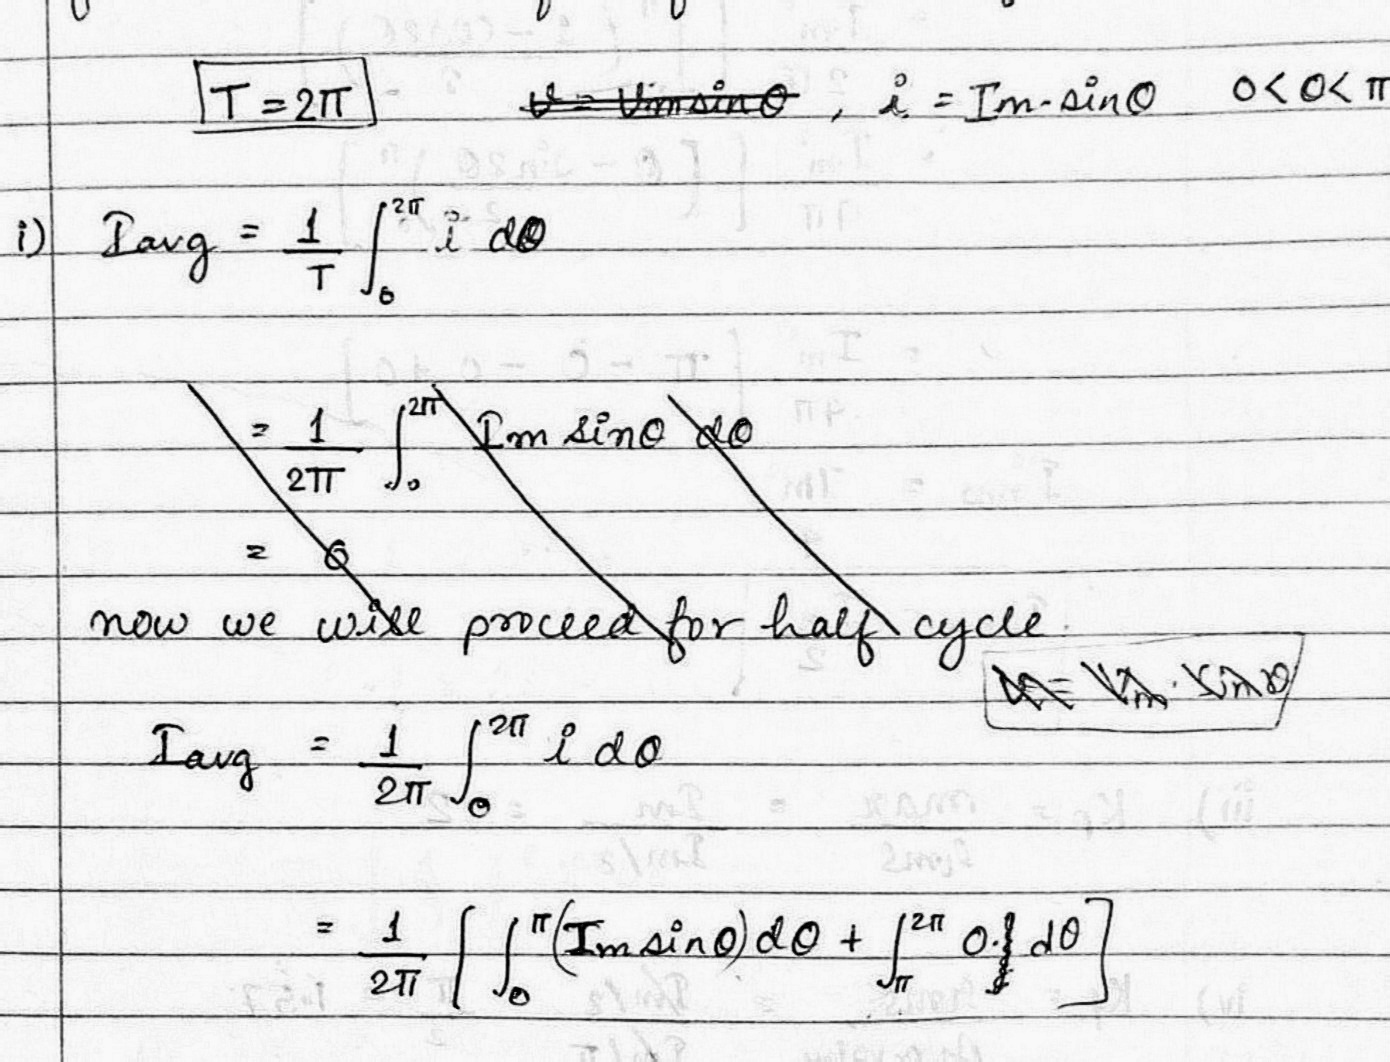 T = 2π v = Vm sinθ , i = Im·sinθ 0<θ<π
i) Iavg = 1/T ∫₀^2π i dθ
= 1/2π ∫₀^2π Im sinθ dθ
= 0
now we will proceed for half cycle.
Iavg = 1/2π ∫₀^2π i dθ
= 1/2π [ ∫₀^π (Im sinθ) dθ + ∫π^2π 0· dθ ]